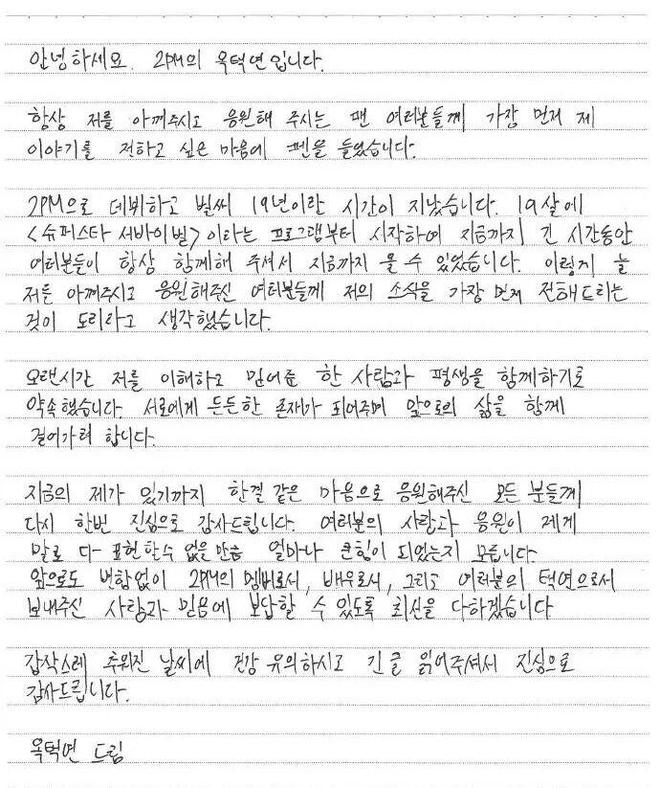 안녕하세요. 2PM의 옥택연입니다.
항상 저를 아껴주시고 응원해 주시는 팬 여러분들께 가장 먼저 제
이야기를 전하고 싶은 마음에 펜을 들었습니다.
2PM으로 데뷔하고 벌써 19년이란 시간이 지났습니다. 19살에
<슈퍼스타 서바이벌>이라는 프로그램부터 시작하여 지금까지 긴 시간동안
여러분들이 항상 함께해 주셔서 지금까지 올 수 있었습니다. 이렇게 늘
저를 아껴주시고 응원해주신 여러분들께 저의 소식을 가장 먼저 전해드리는
것이 도리라고 생각했습니다.
오랜시간 저를 이해하고 믿어준 한 사람과 평생을 함께하기로
약속했습니다. 서로에게 든든한 존재가 되어주며 앞으로의 삶을 함께
걸어가려 합니다.
지금의 제가 있기까지 한결 같은 마음으로 응원해주신 모든 분들께
다시 한번 진심으로 감사드립니다. 여러분의 사랑과 응원이 제게
말로 다 표현할수 없을 만큼 얼마나 큰힘이 되었는지 모릅니다.
앞으로도 변함없이 2PM의 멤버로서, 배우로서, 그리고 여러분의 택연으로서
보내주신 사랑과 믿음에 보답할 수 있도록 최선을 다하겠습니다
갑작스레 추워진 날씨에 건강 유의하시고 긴 글 읽어주셔서 진심으로
감사드립니다.
옥택연 드림